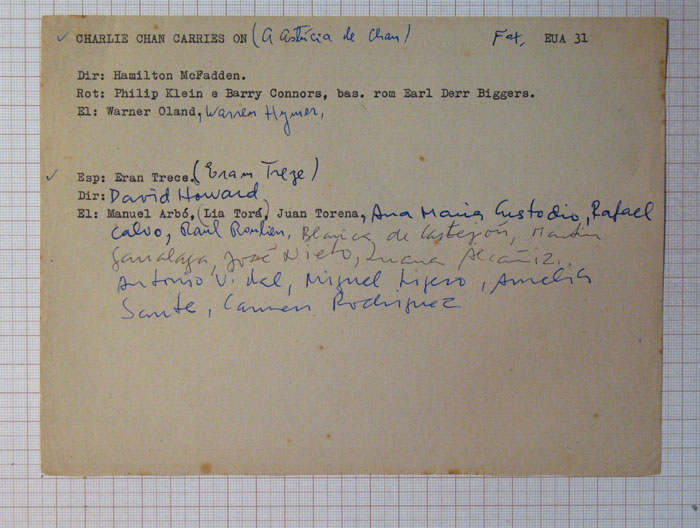 ✓ CHARLIE CHAN CARRIES ON (A Astúcia de Chan) Fox, EUA 31
Dir: Hamilton McFadden.
Rot: Philip Klein e Barry Connors, bas. rom Earl Derr Biggers.
El: Warner Oland, Warren Hymer,
✓ Esp: Eran Trece. (Eram Treze)
Dir: David Howard
El: Manuel Arbó, (Lia Torá) Juan Torena, Ana Maria Custodio, Rafael
Calvo, Raúl Roulien, Blanca de Castejón, Martin
Garralaga, José Nieto, Juana Alcañiz,
Antonio Vidal, Miguel Ligero, Amelia
Sante, Carmen Rodriguez